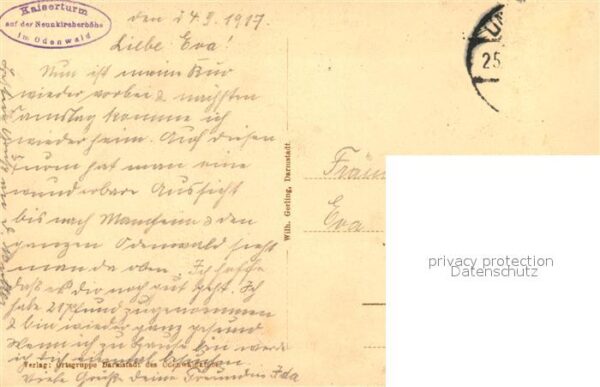 Kaiserturm
auf der Neunkircherhöhe
im Odenwald
den 24.9.1917.
Liebe Eva!
Nun ist meine Kur
wieder vorbei & nächsten
Samstag komme ich
wieder heim. Auch diesen
Turm hat man eine
wunderbare Aussicht
bis nach Mannheim & den
ganzen Odenwald sieht
man da oben. Ich hoffe
daß es dir noch gut geht. Ich
habe 21 Pfund zugenommen
& bin wieder ganz gesund
Wenn ich zu Hause bin werde
ich dich einmal besuchen
Viele Grüße deine Freundin Ida
Verlag: Ortsgruppe Darmstadt des Odenwaldklubs
Wilh. Gerling, Darmstadt.
25
Fräu
Eva
privacy protection
Datenschutz